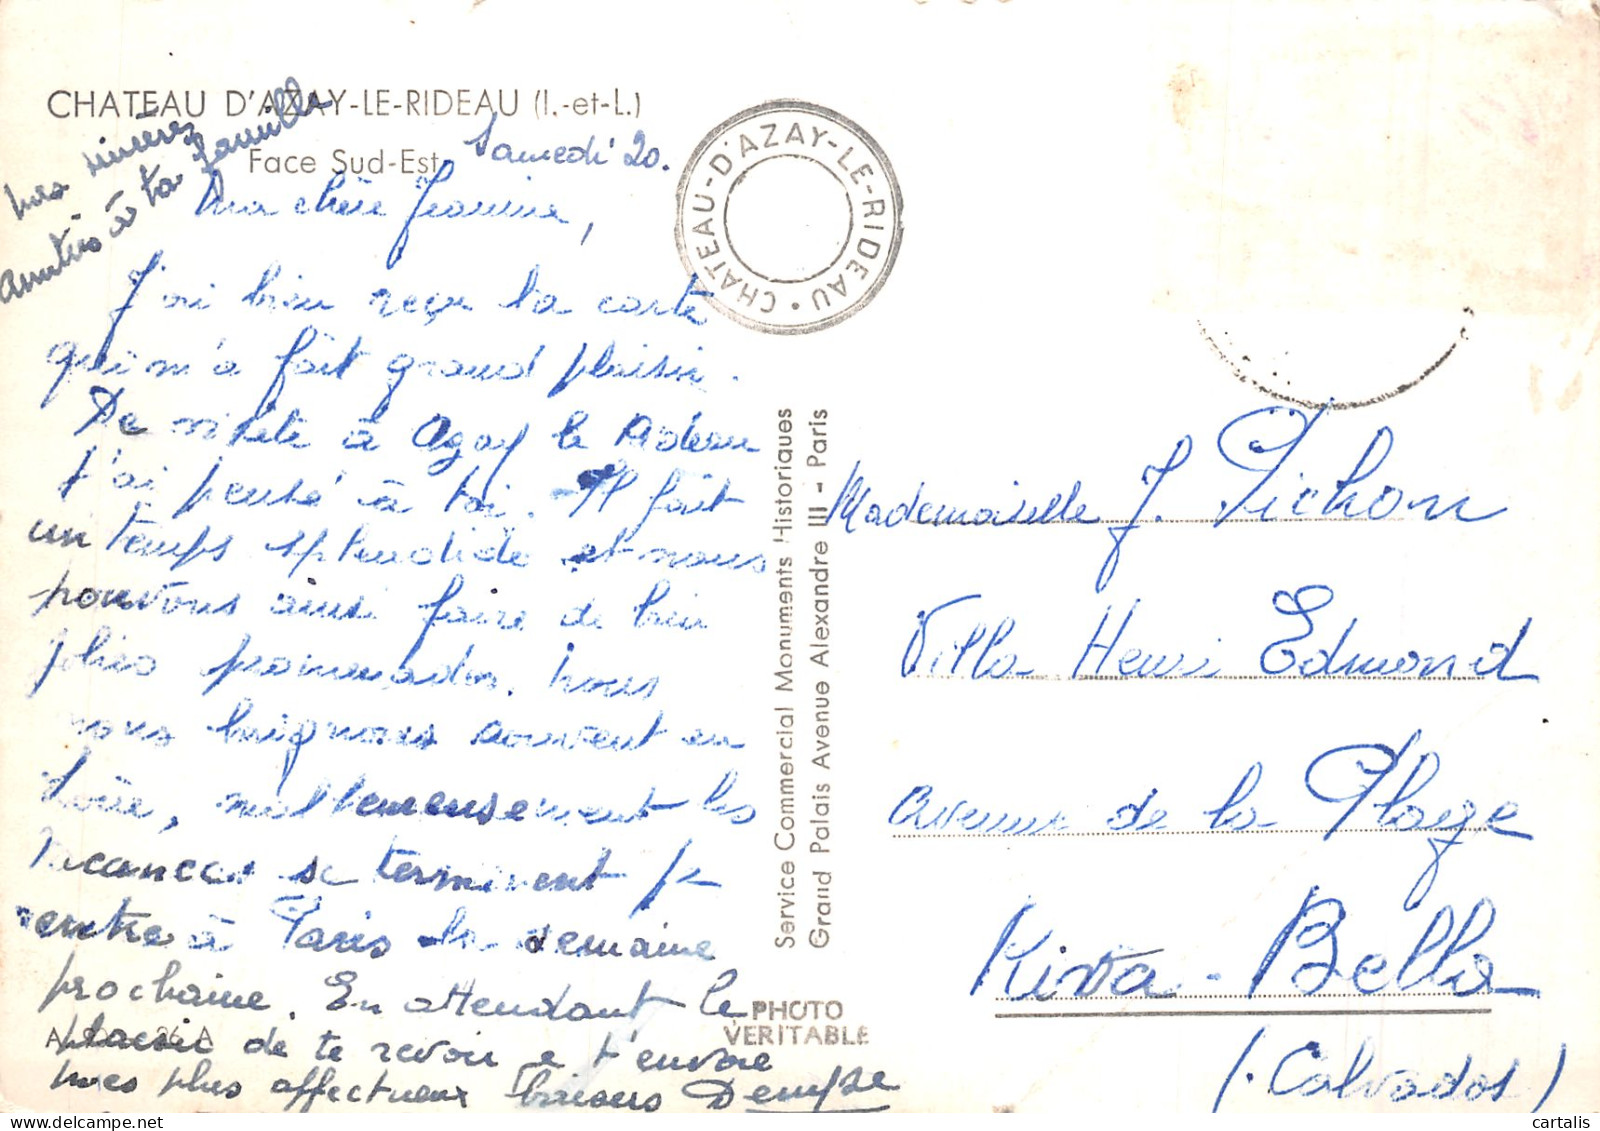 CHATEAU D'AZAY-LE-RIDEAU (I.-et-L.)
Face Sud-Est
CHATEAU-D'AZAY-LE-RIDEAU •
Samedi 20.
Ma chère Jeannine,
J'ai bien reçu ta carte
qui m'a fait grand plaisir.
De visite à Azay le Rideau
j'ai pensé à toi. Il fait
un temps splendide et nous
pouvons ainsi faire de bien
jolies promenades. Nous
nous baignons souvent en
Loire, malheureusement les
vacances se terminent je
rentre à Paris la semaine
prochaine. En attendant le
plaisir de te revoir je t'envoie
mes plus affectueux baisers Denyse
mes sincères
amitiés à ta famille
Service Commercial Monuments Historiques
Grand Palais Avenue Alexandre III - Paris
PHOTO
VERITABLE
Mademoiselle J. Pichon
Villa Henri Edmond
Avenue de la Plage
Riva-Bella
(Calvados)
cartalis